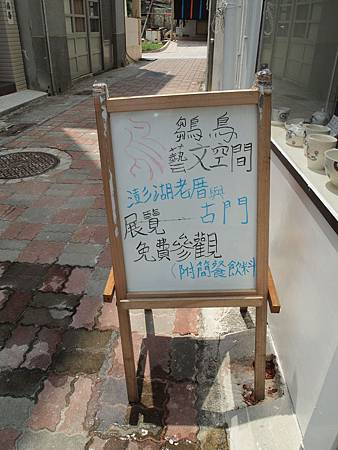 鶵鳥
藝文空間
澎湖老厝與
古門
展覽
免費參觀
(附簡餐飲料)